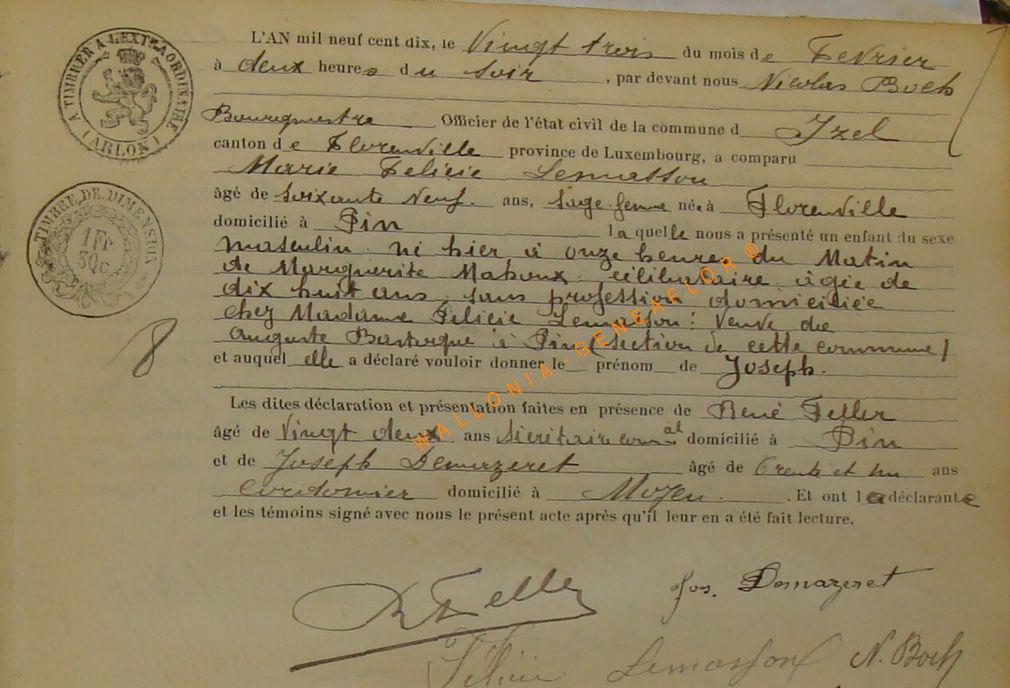 L'AN mil neuf cent dix, le Vingt trois du mois de Fevrier
à deux heures du soir , par devant nous Nicolas Boch
Bourgmestre Officier de l'état civil de la commune d Izel
canton de Florenville province de Luxembourg, a comparu
Marie Felicie Lemasson
âgé de soixante neuf ans, sage-femme née à Florenville
domicilié à Pin laquelle nous a présenté un enfant du sexe
masculin né hier à onze heures du Matin
de Marguerite Mahoux célibataire âgée de
dix huit ans, sans profession domiciliée
chez Madame Félicie Lemasson: Veuve de
Auguste à Pin (section de cette commune)
et auquel elle a déclaré vouloir donner le prénom de Joseph.
Les dites déclaration et présentation faites en présence de René Feller
âgé de Vingt deux ans Sécrétaire comal domicilié à Pin
et de Joseph Demazeret âgé de trente et un ans
cordonnier domicilié à Moyen. . Et ont la déclarante
et les témoins signé avec nous le présent acte après qu'il leur en a été fait lecture.
A TIMBRER A L'EXTRAORDINAIRE
(ARLON)
TIMBRE DE DIMENSION
1 Fr
50 c
8
WALLONIA-GENEAFLOR®
R Feller
Jos. Demazeret
Félicie Lemasson
N. Boch